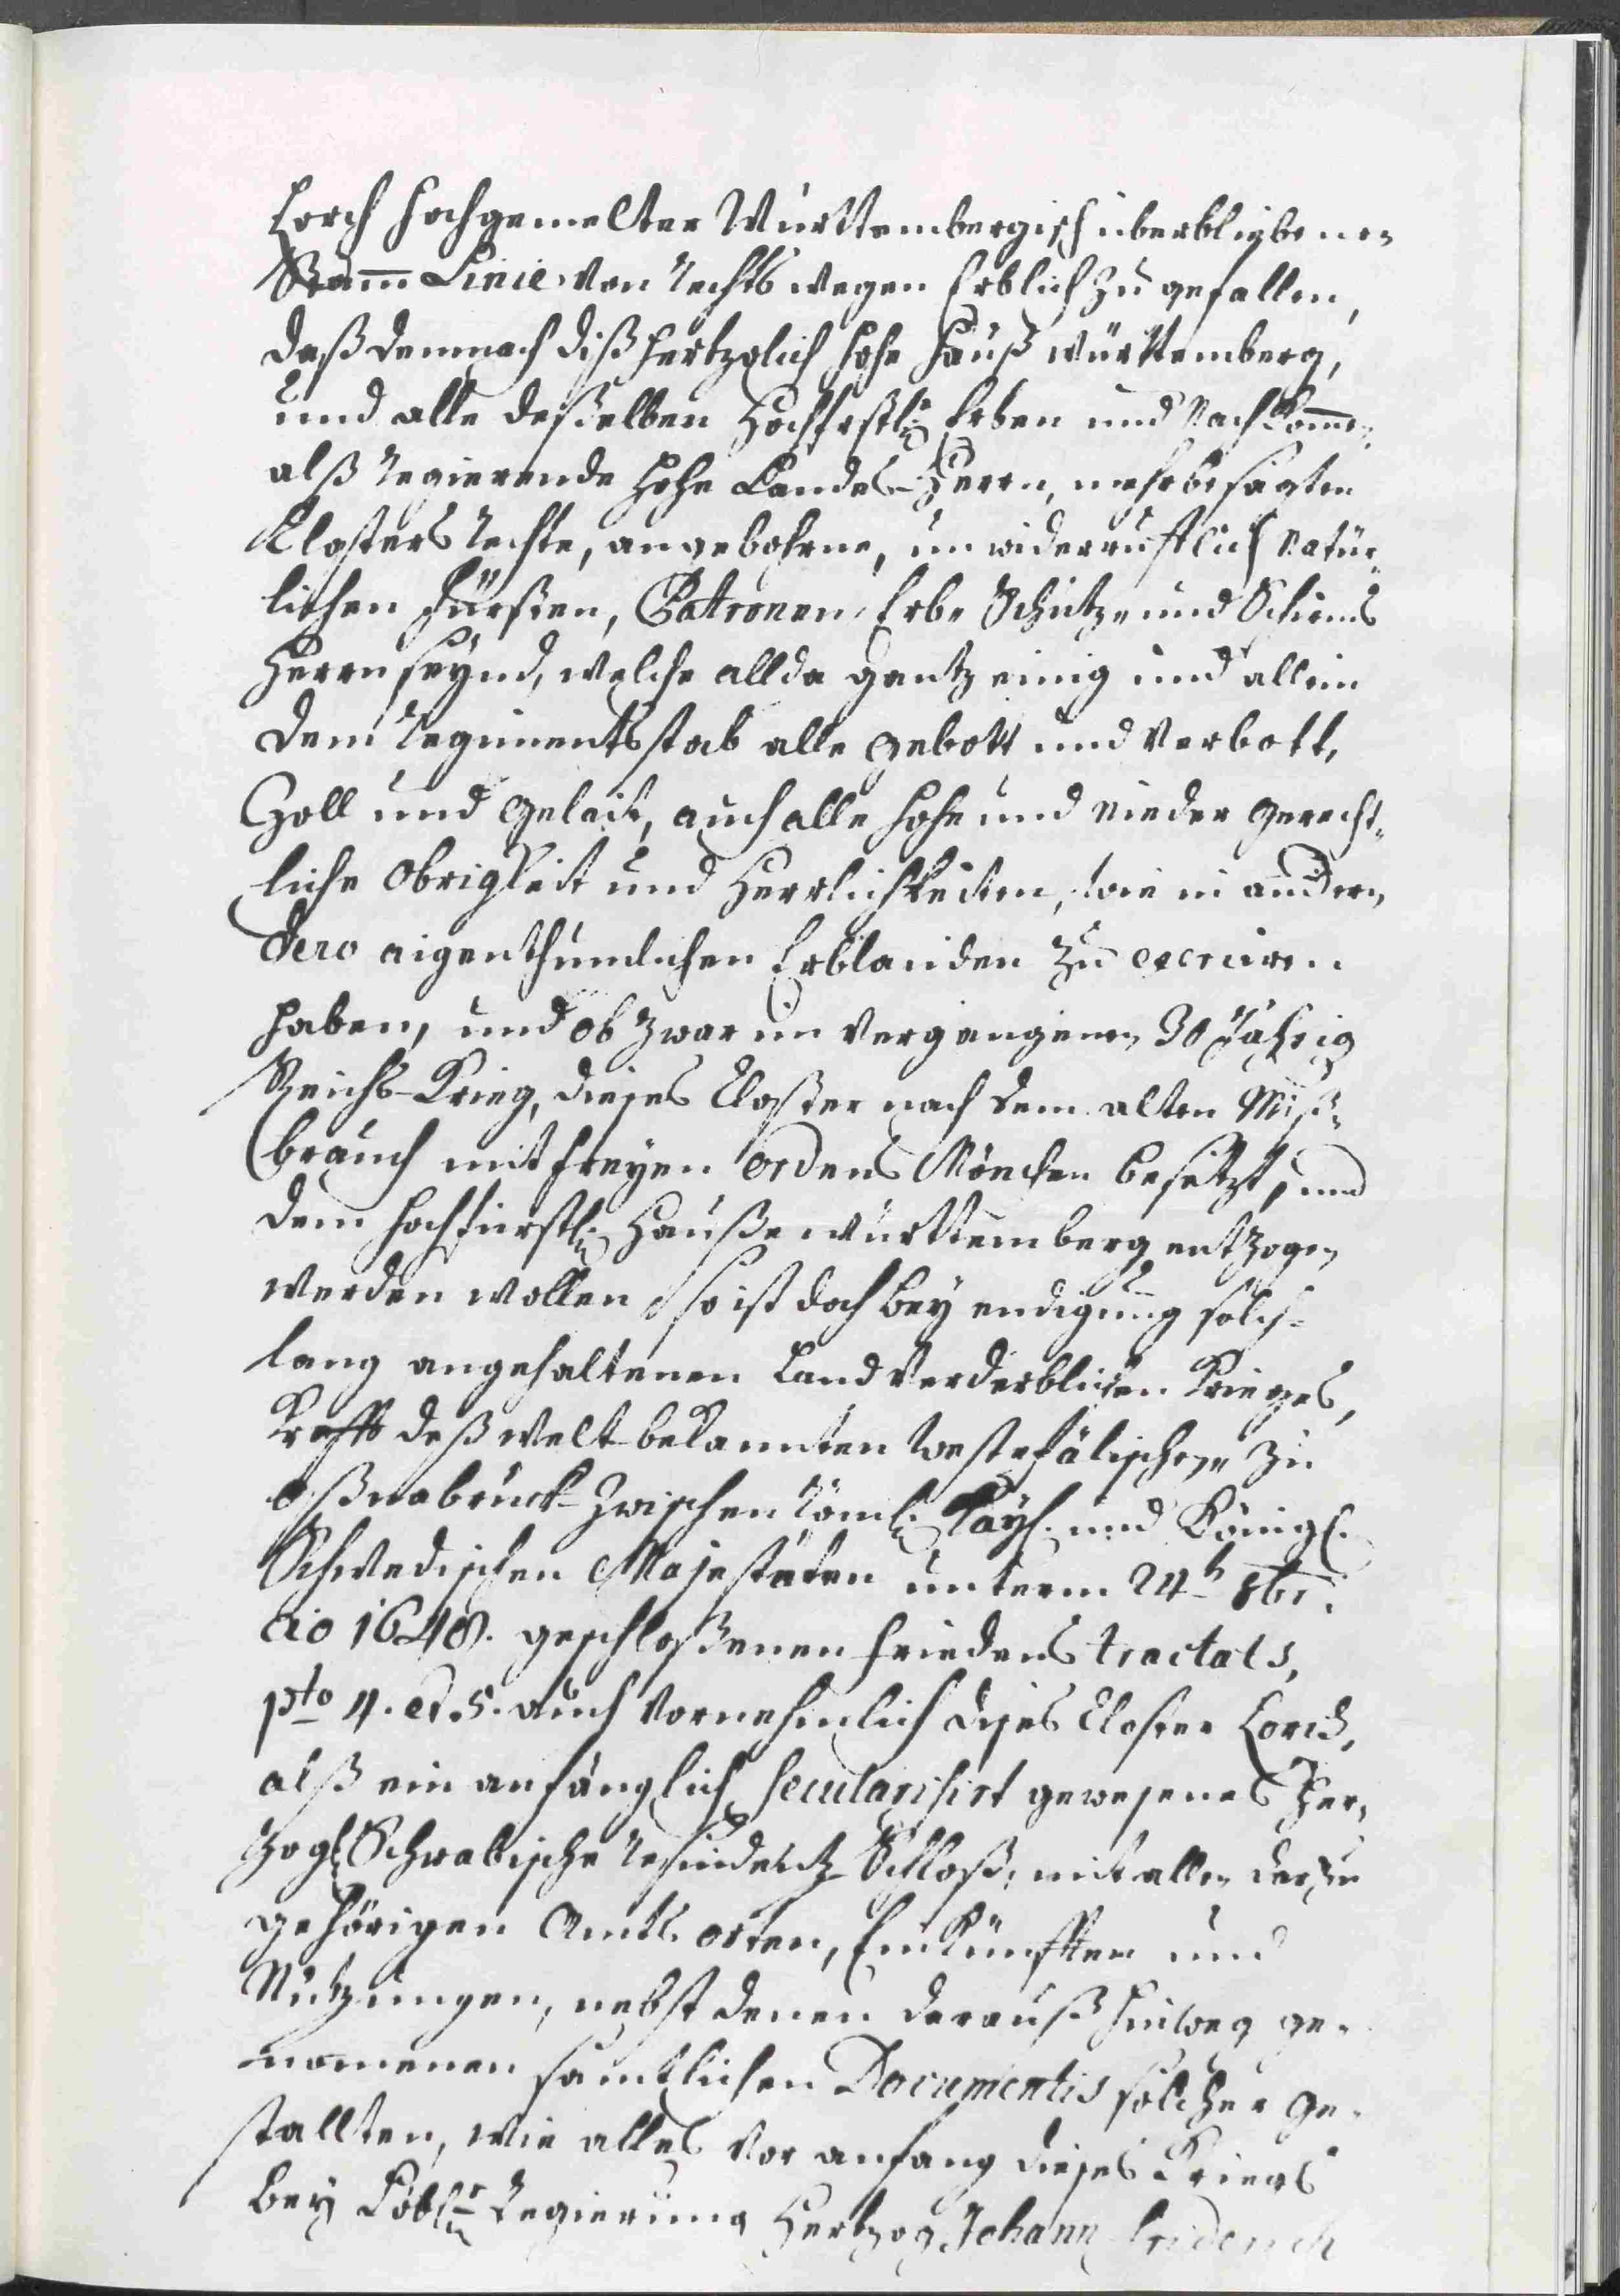 Lorch hochgemelter Württembergisch überbliebenen
Stamm Linie von rechts wegen Erblich zu gefallen,
daß demnach diß Hertzoglich hohe Hauß württemberg,
und alle deßelben Hochfrstl: Erben und Nachkommen,
alß regierende hohe Landes-Herrn, mehrbesagten
Closters rechte, angebohrne, unwiderrufflich Natür-
lichen Fürsten, Patronen, Erb- Schutz- und Schirms
Herrn seynd, welche allda gantz einig und allein
dem Regimentsstab alle gebott und Verbott,
Zoll und gelait, auch alle hohe und nieder gericht-
liche Obrigkeit und Herrlichkeiten, wie in andern
dero aigenthumlichen Erblanden zu exerciren
haben, und ob zwar im vergangenen 30 Jährig
Reichs-Krieg, dieses Closter nach dem alten Miß-
brauch mit freyen Ordens Mönchen besetzt, und
dem hochfürstl: Hauße württemberg entzogen
werden wollen so ist doch bey endigung solch-
lang angehaltenen Land Verderblichen Krieges,
Krafft deß welt-bekannten westpfälischen, zu
Oßnabrück zwischen Röml: Kayl. und Königl.
Schwedischen Majestäten unterm 24ten 8br.
ao 1648. geschloßenen friedens tractats,
pto 4. et 5. auch Vornehmlich dises Closter Lorch,
alß ein anfänglich secularisirt gewesenes Her-
zogl. Schwabische residentz Schloß, mit allen darzu
gehörigen Amts orten, Einkünfften und
Nutzungen, nebst denen darauß hinweg ge-
nomenen samtlichen Documentis solcher ge-
stallten, wie alles vor anfang dieses Kriegs
bey Löblr Regierung Hertzog Johann Friderich